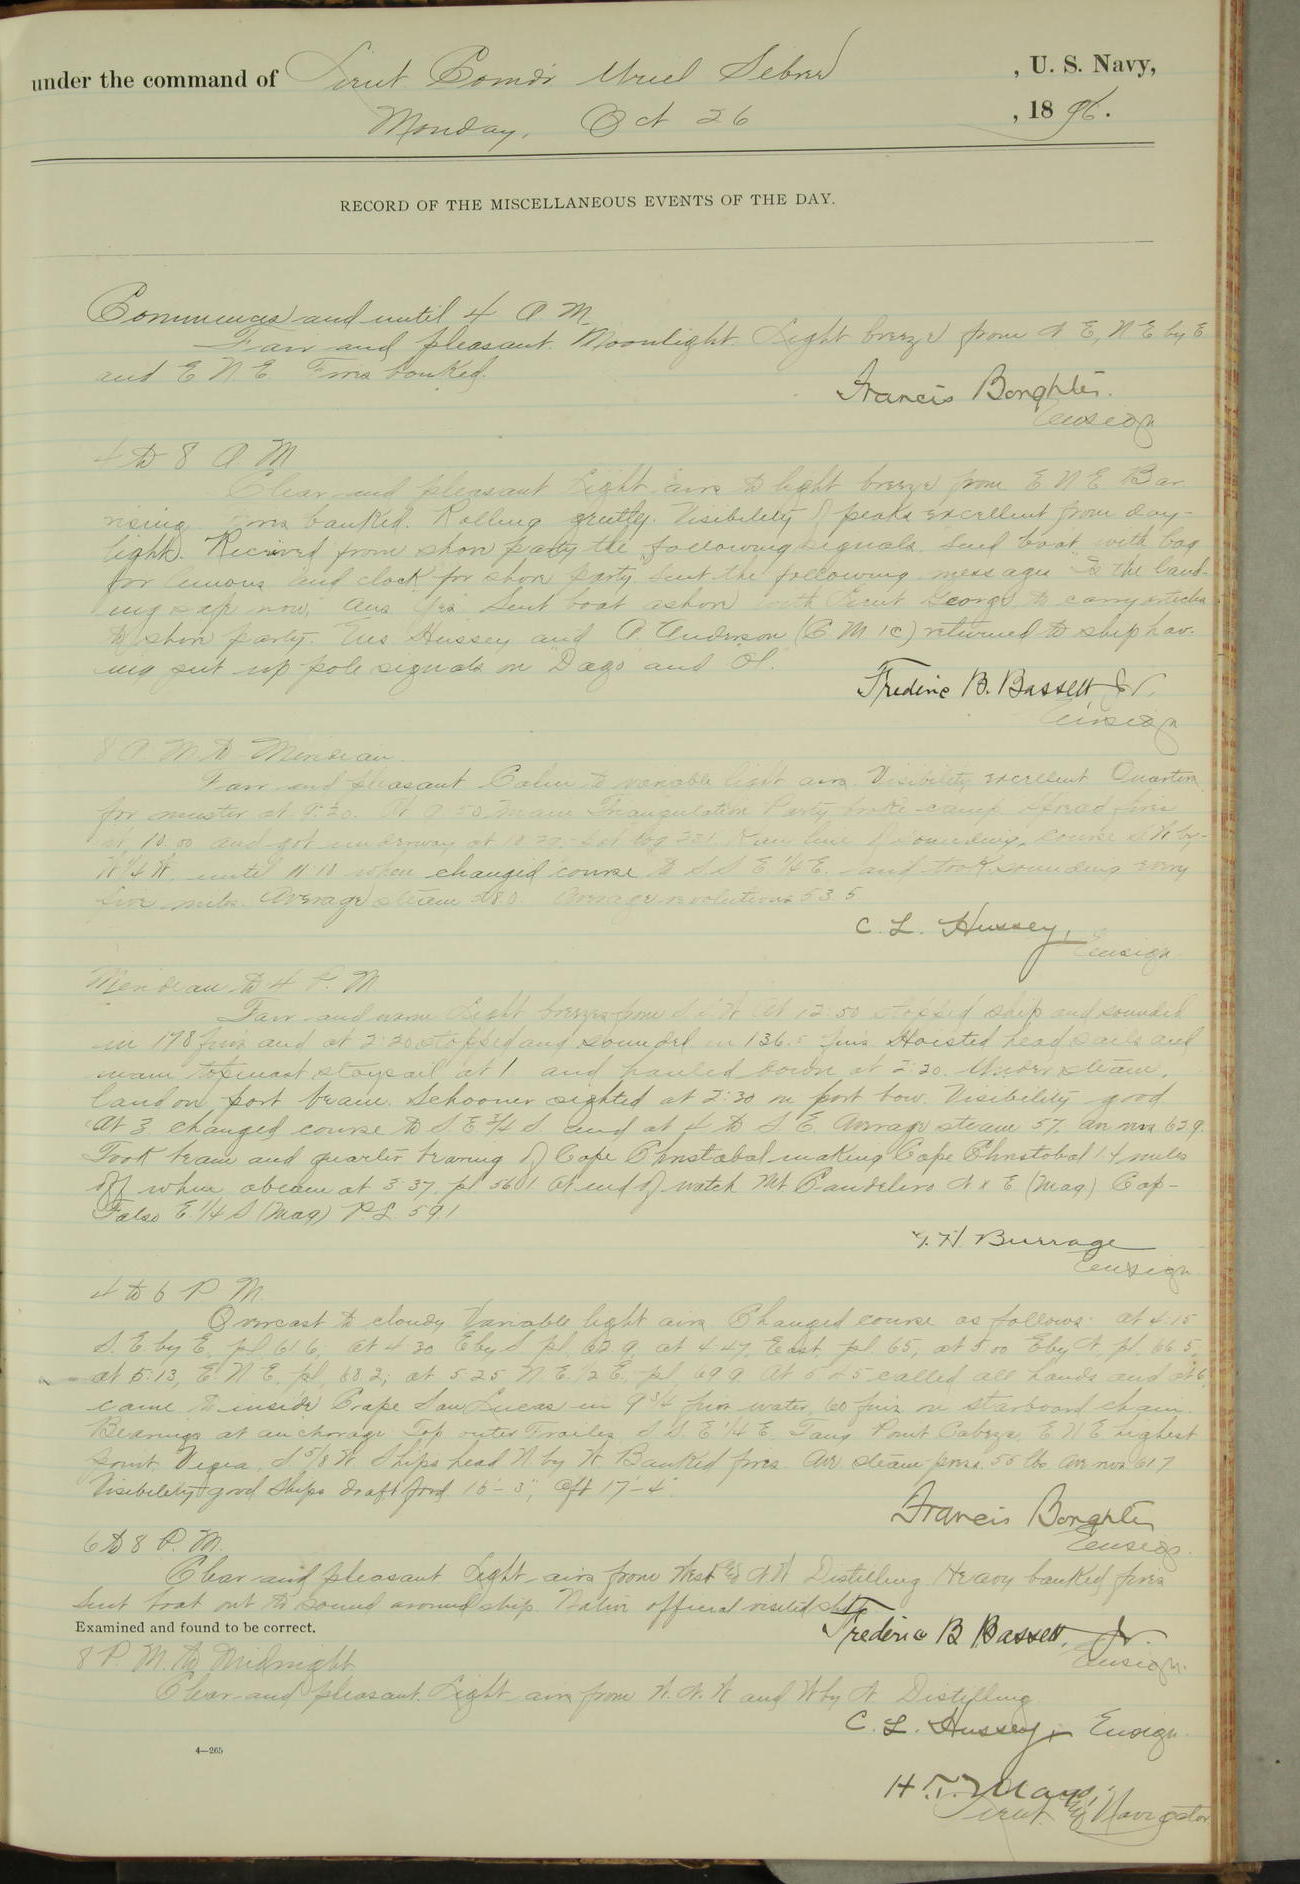 under the command of Lieut. Comdr. Uriel Sebree, U. S. Navy,
Monday, Oct 26, 1896.
RECORD OF THE MISCELLANEOUS EVENTS OF THE DAY.
Commences and until 4 A M
Fair and pleasant. Moonlight. Light breeze from N E, N E by E
and E N E Fires banked.
Francis Boughter.
Ensign
4 to 8 A M
Clear and pleasant Light airs to light breeze from E N E Bar
rising Fires banked. Rolling gently. Visibility of peaks excellent from day-
light. Received from shore party the following signals. Send boat with bag
for lemons and clock for shore party. Sent the following messages Is the land-
ing safe now; Ans Yes. Sent boat ashore with Lieut George to carry articles
to shore party. Ens Hussey and A Anderson (C M 1c) returned to ship hav-
ing put up pole signals on "Dago" and "Ol."
Frederic B. Bassett, Jr.
Ensign
8 A. M. to Meridian.
Fair and pleasant Calm to variable light airs. Visibility excellent Quarters
for muster at 9:30. At 9 50 Main Triangulation Party broke camp Spread fires
at 10:00 and got underway at 10 20. Ran line of soundings, course S W by
W 1/4 W. until 11:10 when changed course to S S E 1/4 E. and took sounding every
five miles. Average steam 48.0. Average revolutions 53.5
C. L. Hussey,
Ensign
Meridian to 4 P. M.
Fair and warm Light breezes from S S W At 12:50 stopped ship and sounded
in 178 fms and at 2:20 stopped and sounded in 136.5 fms Hoisted head sails and
main topmast staysail at 1 and hauled down at 2:20. Under steam.
land on port beam. Schooner sighted at 2:30 on port bow. Visibility good
At 3 changed course to S. E 3/4 S. and at 4 to S. E. Average steam 57. av revs 62 9.
Took beam and quarter bearing of Cape Christobal making Cape Christobal 1.4 miles
off when abeam at 3:37. pl 56.1 At end of watch Mt Candelero N x E (mag) Cape
Falso E. 1/4 S (mag) P. L. 59.1
G. H. Burrage
Ensign
4 to 6 P M.
Overcast to cloudy Variable light airs Changed course as follows: at 4:15
S. E. by E. pl 61 6; at 4 30 E by S pl. 62.9, at 4:47, East pl. 65; at 5 00 E by N, pl. 66 5,
at 5:13, E. N E, pl, 68 2; at 5 25 N. E. 1/2 E. pl, 69 9. At 5 45 called all hands and at 6
came to inside Cape San Lucas in 9 3/4 fms water, 60 fms on starboard chain.
Bearings at anchorage Top outer Frailes S S. E 1/4 E. Tang Point Cabeza, E N E highest
point Vigia, S 5/8 W. Ships head N by W. Banked fires. Av. steam press. 55 lbs Av. revs 61 7
Visibility good Ships draft ford 15'-3", aft 17'-4".
Francis Boughter
Ensign.
6 to 8 P. M.
Clear and pleasant Light airs from West and N W Distilling Heavy banked fires
Sent boat out to sound around ship. Native official visited ship.
Frederic B Bassett, Jr.
Ensign.
Examined and found to be correct.
8 P. M. to Midnight
Clear and pleasant. Light airs from W. N. W and W by N. Distilling.
C. L. Hussey, Ensign.
4—265
H. T. Mayo,
Lieut. and Navigator